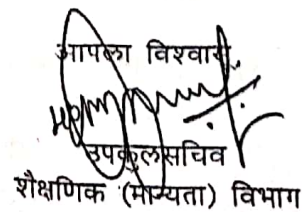 आपला विश्वासू
उपकुलसचिव
शैक्षणिक (मान्यता) विभाग